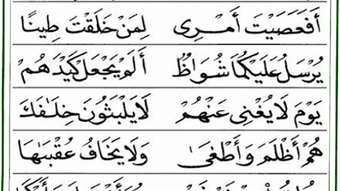 أَفَعَصَيْتَ أَمْرِى لِمَنْ خَلَقْتَ طِينًا
يُرْسَلُ عَلَيْكُمَا شُوَاظٌ أَلَمْ يَجْعَلْ كَيْدَهُمْ
يَوْمَ لَا يُغْنِى عَنْهُمْ لَا يَلْبَثُونَ خِلَٰفَكَ
هُمْ أَظْلَمَ وَأَطْغَىٰ وَلَا يَخَافُ عُقْبَٰهَا